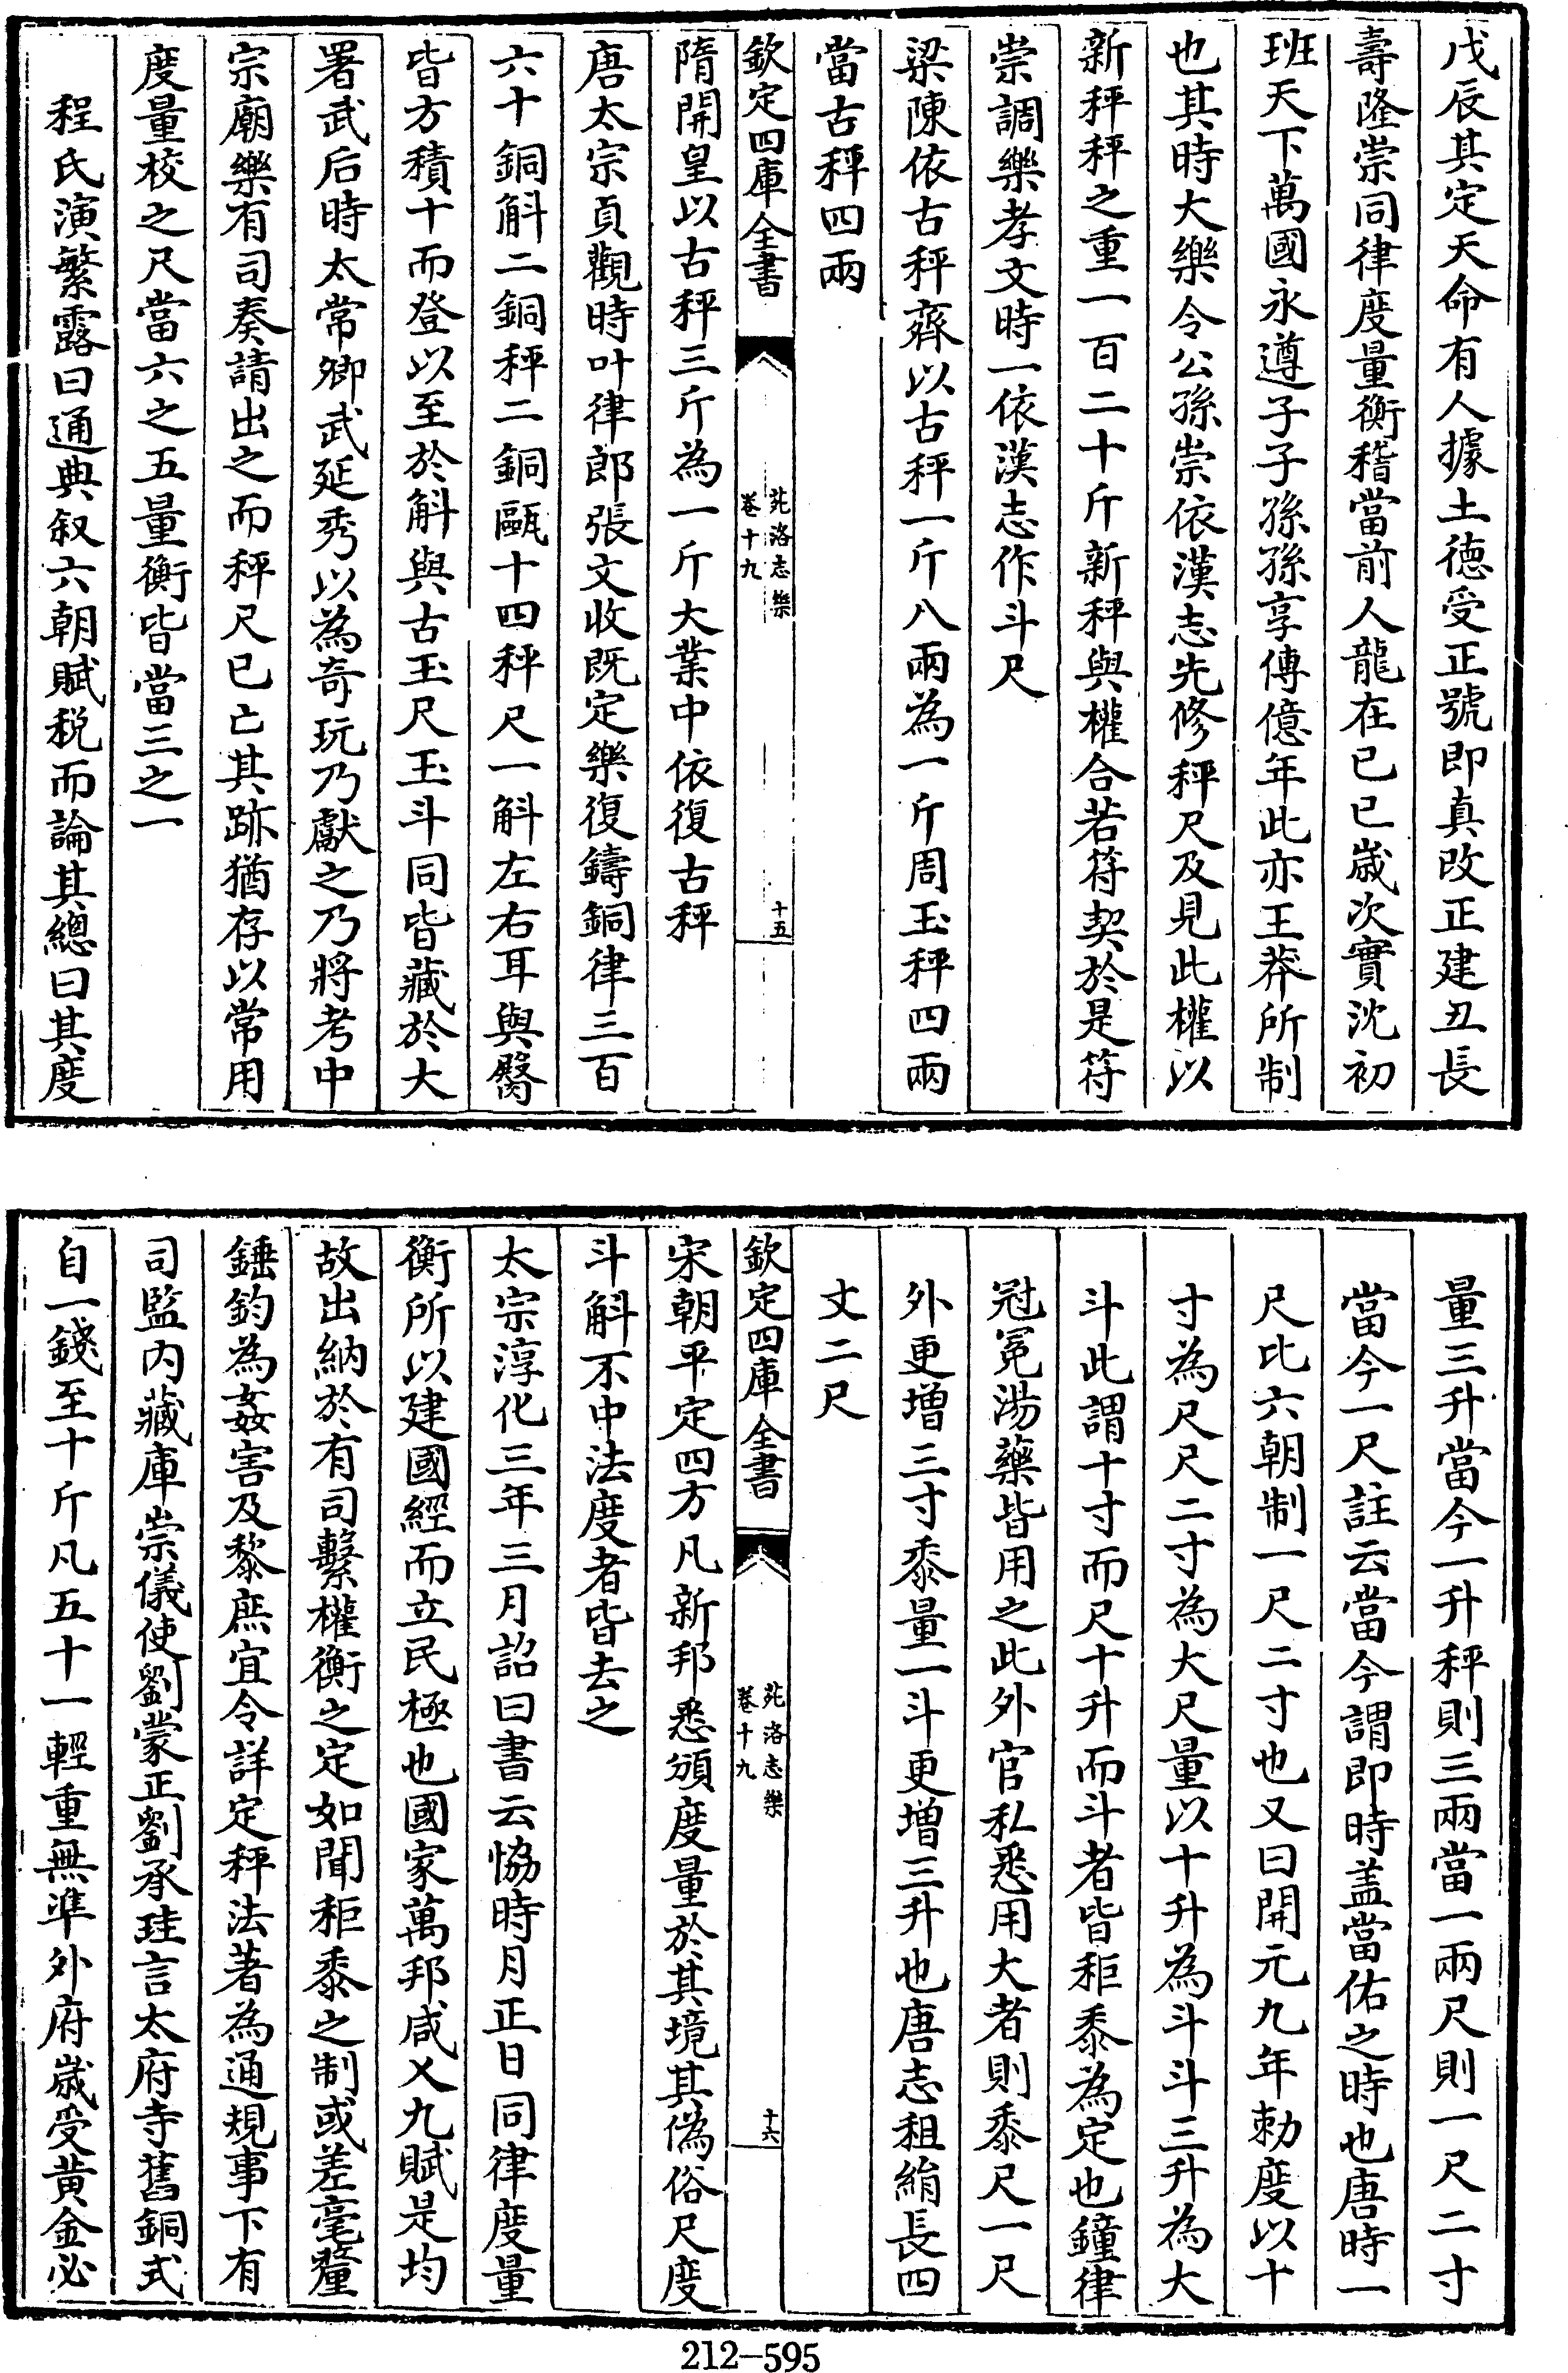 戊辰其定天命有人據土德受正號即真改正建丑長
壽隆崇同律度量衡稽當前人龍在己巳歲次實沈初
班天下萬國永遵子子孫孫享傳億年此亦王莽所制
也其時大樂令公孫崇依漢志先修秤尺及見此權以
新秤秤之重一百二十斤新秤與權合若符契於是符
崇調樂孝文時一依漢志作斗尺
梁陳依古秤齊以古秤一斤八兩為一斤周玉秤四兩
當古秤四兩
欽定四庫全書
苑洛志樂
卷十九
十五
隋開皇以古秤三斤為一斤大業中依復古秤
唐太宗貞觀時叶律郎張文收既定樂復鑄銅律三百
六十銅斛二銅秤二銅甌十四秤尺一斛左右耳與臀
皆方積十而登以至於斛與古玉尺玉斗同皆藏於大
署武后時太常卿武延秀以為奇玩乃獻之乃將考中
宗廟樂有司奏請出之而秤尺已亡其跡猶存以常用
度量校之尺當六之五量衡皆當三之一
程氏演繁露曰通典叙六朝賦稅而論其總曰其度
量三升當今一升秤則三兩當一兩尺則一尺二寸
當今一尺註云當今謂即時盖當佑之時也唐時一
尺比六朝制一尺二寸也又曰開元九年勑度以十
寸為尺尺二寸為大尺量以十升為斗斗三升為大
斗此謂十寸而尺十升而斗者皆秬黍為定也鐘律
冠冕湯藥皆用之此外官私悉用大者則黍尺一尺
外更增三寸黍量一斗更增三升也唐志租絹長四
丈二尺
欽定四庫全書
苑洛志樂
卷十九
十六
宋朝平定四方凡新邦悉頒度量於其境其偽俗尺度
斗斛不中法度者皆去之
太宗淳化三年三月詔曰書云恊時月正日同律度量
衡所以建國經而立民極也國家萬邦咸乂九賦是均
故出納於有司繫權衡之定如聞秬黍之制或差毫釐
錘鈞為姦害及黎庶宜令詳定秤法著為通規事下有
司監内藏庫崇儀使劉蒙正劉承珪言太府寺舊銅式
自一錢至十斤凡五十一輕重無準外府歲受黃金必
212-595